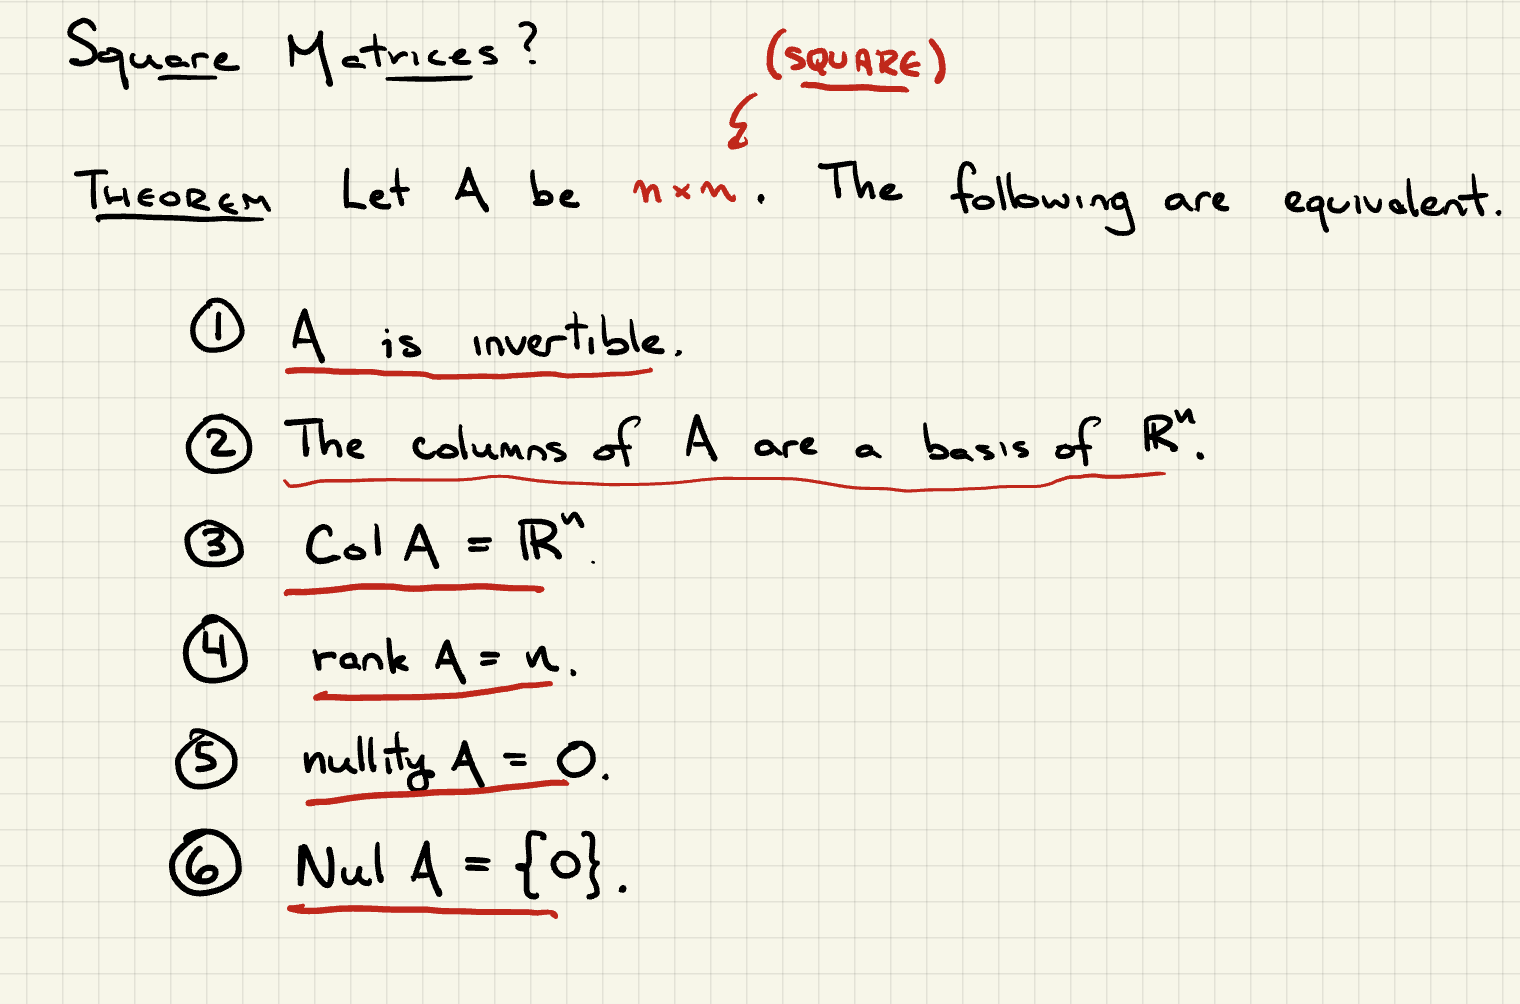 Square Matrices?
(SQUARE)
THEOREM Let A be n×n. The following are equivalent.
① A is invertible.
② The columns of A are a basis of ℝⁿ.
③ Col A = ℝⁿ.
④ rank A = n.
⑤ nullity A = 0.
⑥ Nul A = {0}.